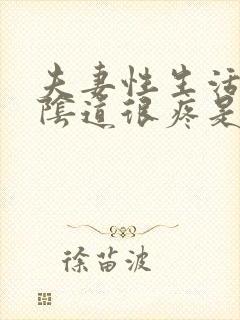 夫妻性生活
陰道很疼是
徐苗波